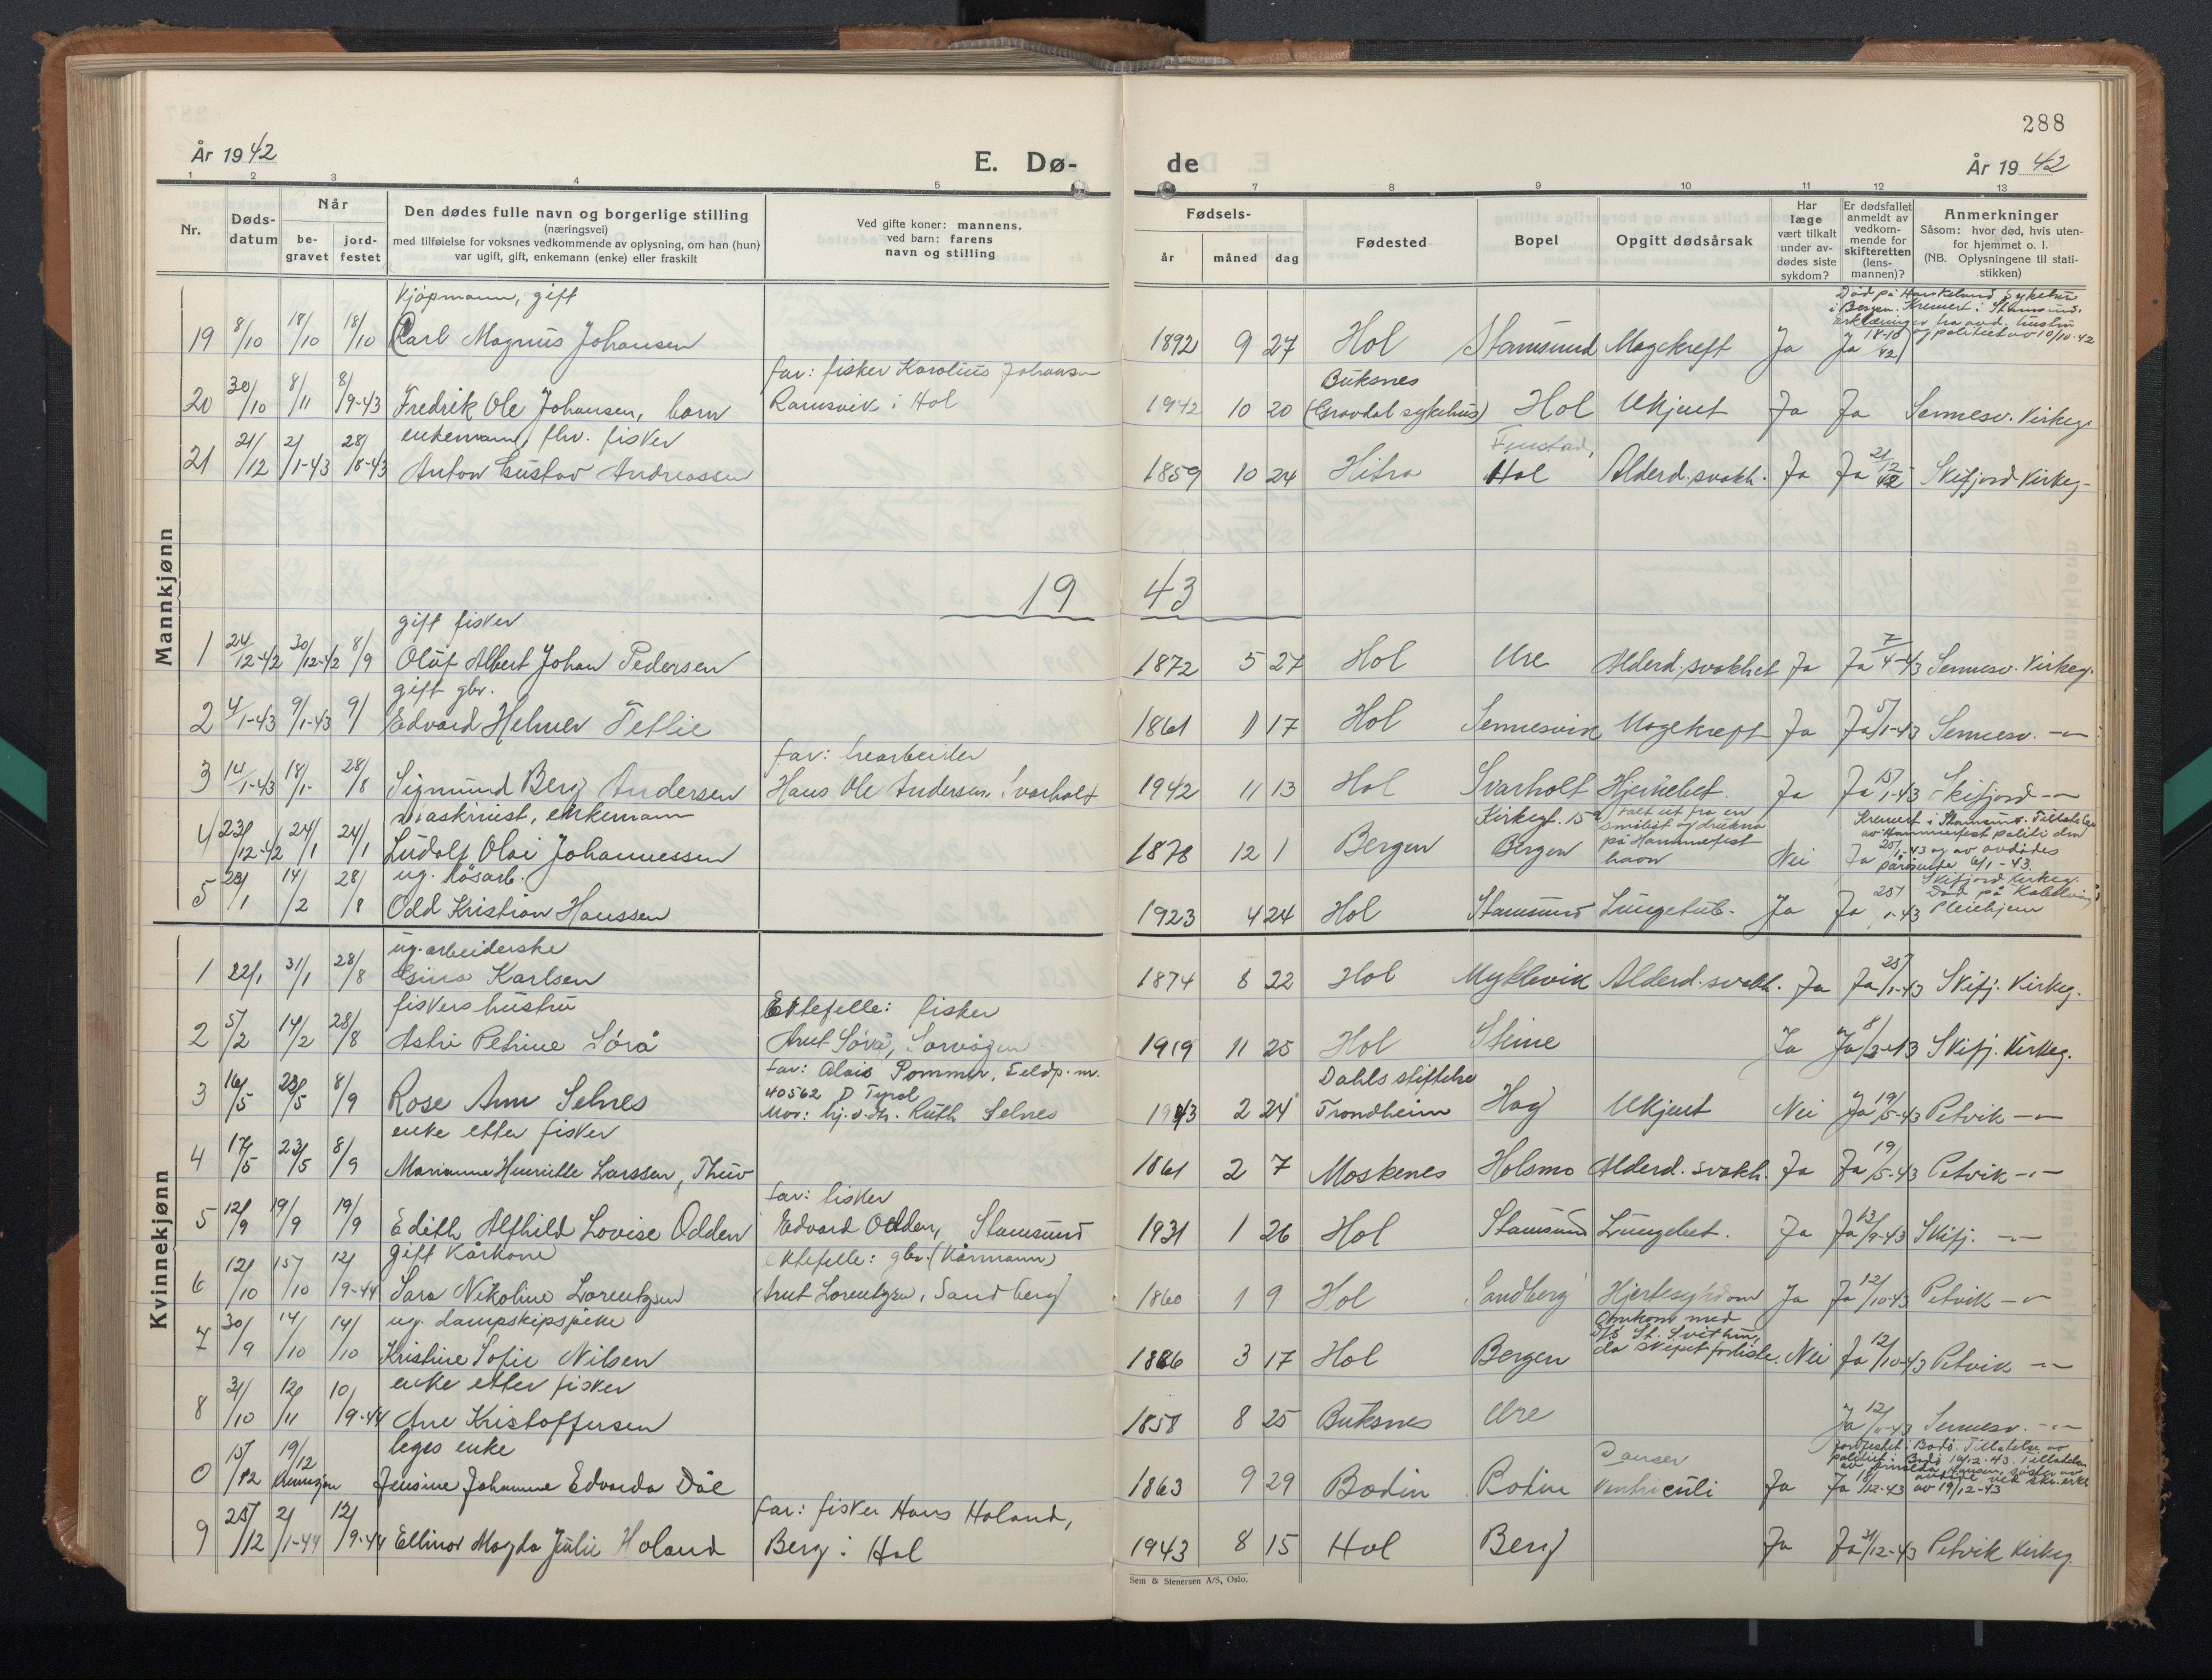 288
År 1942 E. Dø- de År 1942
1 2 3 4 5 7 8 9 10 11 12 13
Nr.
Døds-
datum
Når
be-
gravet
jord-
festet
Den dødes fulle navn og borgerlige stilling
(næringsvei)
med tilføielse for voksnes vedkommende av oplysning, om han (hun)
var ugift, gift, enkemann (enke) eller fraskilt
Ved gifte koner: mannens,
ved barn: farens
navn og stilling
Fødsels-
år måned dag
Fødested
Bopel
Opgitt dødsårsak
Har
læge
vært tilkalt
under av-
dødes siste
sykdom?
Er dødsfallet
anmeldt av
vedkom-
mende for
skifteretten
(lens-
mannen)?
Anmerkninger
Såsom: hvor død, hvis uten-
for hjemmet o. l.
(NB. Oplysningene til stati-
stikken)
Mannkjønn
Kjøpmann, gift
19 8/10 18/10 18/10 Carl Magnus Johansen 1892 9 27 Hol Stamsund Magekreft Ja Ja 18-10 42
Død på Haukeland Sykehus
i Bergen. Kremert i Stamsund.
Erklæringer fra avd. hustru
og politiet av 10/10-42
far: fisker Karolius Johansen
Buksnes
20 30/10 8/11 8/9-43 Fredrik Ole Johansen, barn Ramsvik i Hol 1942 10 20 (Gravdal sykehus) Hol Ukjent Ja Ja Sennesv. Kirkeg.
enkemann, fhv. fisker
21 21/12 2/1-43 28/8-43 Anton Gustav Andreassen 1859 10 24 Hitra Hol Alderd. svakh. Ja Ja 21/12 42 Skifjord Kirkeg.
1943
gift fisker
1 24/12-42 30/12-42 8/9 Oluf Albert Johan Pedersen 1872 5 27 Hol Ure Alderd. svakhet Ja Ja 7/4-43 Sennesv. Kirkeg.
gift gbr.
2 4/1-43 9/1-43 9/1 Edvard Helmer Tetlie 1861 1 17 Hol Sennesvik Magekreft Ja Ja 5/1-43 Sennesv. -"-
far: trearbeider
3 14/1-43 18/1- 28/8 Sigmund Berg Andersen Hans Ole Andersen, Svarholt 1942 11 13 Hol Svarholt Hjernebet. Ja Ja 15/1-43 Skifjord -"-
maskinist, enkemann
4 23/12-42 24/1 24/1 Ludolf Olai Johannessen 1878 12 1 Bergen Kirkegt. 15 Bergen
Falt ut fra en
småbåt og drukna
på Hammerfest
havn
Nei Ja
Kremert i Stamsund. Tillatelse
av Hammerfest politi den
20/1-43 og av avdødes
pårørende 6/1-43
ug. løsarb.
5 23/1 14/2 28/8 Odd Kristian Hanssen 1923 4 24 Hol Stamsund Lungetub. Ja Ja 25/1-43
Skifjord Kirkeg.
Død på
Pleiehjem
Kvinnekjønn
ug. arbeiderske
1 22/1 31/1 28/8 Esina Karlsen 1874 8 22 Hol Myklevik Alderd. svakh. Ja Ja 25/1-43 Skifj. Kirkeg.
fiskers hustru
Ektefelle: fisker
2 5/2 14/2 28/8 Astri Petrine Sørå Arnt Sørå, Sørvågen 1919 11 25 Hol Steine Ja Ja 8/2-43 Skifj. Kirkeg.
far: Alois Pommer, Feldp. nr.
40562 D Tyrol
3 16/5 23/5 8/9 Rose Ann Selnes Mor: hj.v.dtr. Ruth Selnes 1943 2 24 Dahls stiftelse Trondheim Hag Ukjent Nei Ja 19/5-43 Petvik -"-
enke etter fisker
4 17/5 23/5 8/9 Marianne Henriette Larssen, Thuv 1861 2 7 Moskenes Holsmo Alderd. svakh. Ja Ja 19/5-43 Petvik -"-
far: fisker
5 12/9 19/9 19/9 Edith Alfhild Lovise Odden Edvard Odden, Stamsund 1931 1 26 Hol Stamsund Lungebet. Ja Ja 13/9-43 Skifj. -"-
gift Kårkone
ektefelle: gbr. (Kårmann)
6 12/10 15/10 12/9-44 Sara Nikoline Lorentzen Arnt Lorentzen, Sandberg 1860 1 9 Hol Sandberg Hjertesykdom Ja Ja 12/10-43 Petvik -"-
ug. dampskipspike
7 30/9 14/10 14/10 Kristine Sofie Nilsen 1886 3 17 Hol Bergen
Omkom med
D/S St. Svithun,
da skipet forliste.
Nei Ja 12/10-43 Petvik -"-
enke etter fisker
8 31/10 12/11 10/9-44 Ane Kristoffersen 1858 8 25 Buksnes Ure Ja 12/11-43 Sennesv. -"-
leges enke
0 15/12 19/12 Jensine Johanne Edvarda Døe 1863 9 29 Bodin Bodin Cancer Ventriculi Ja Ja 18/12-43
Jordfestet i Bodø. Tillatelse av
politiet i Bodø 16/12-43. Tillatelse
av 19/12-43
far: fisker Hans Holand,
9 25/12 2/1-44 12/9-44 Ellinor Magda Julie Holand Berg i Hol 1943 8 15 Hol Berg Ja Ja 31/12-43 Petvik Kirkeg.
Sem & Stenersen A/S, Oslo.